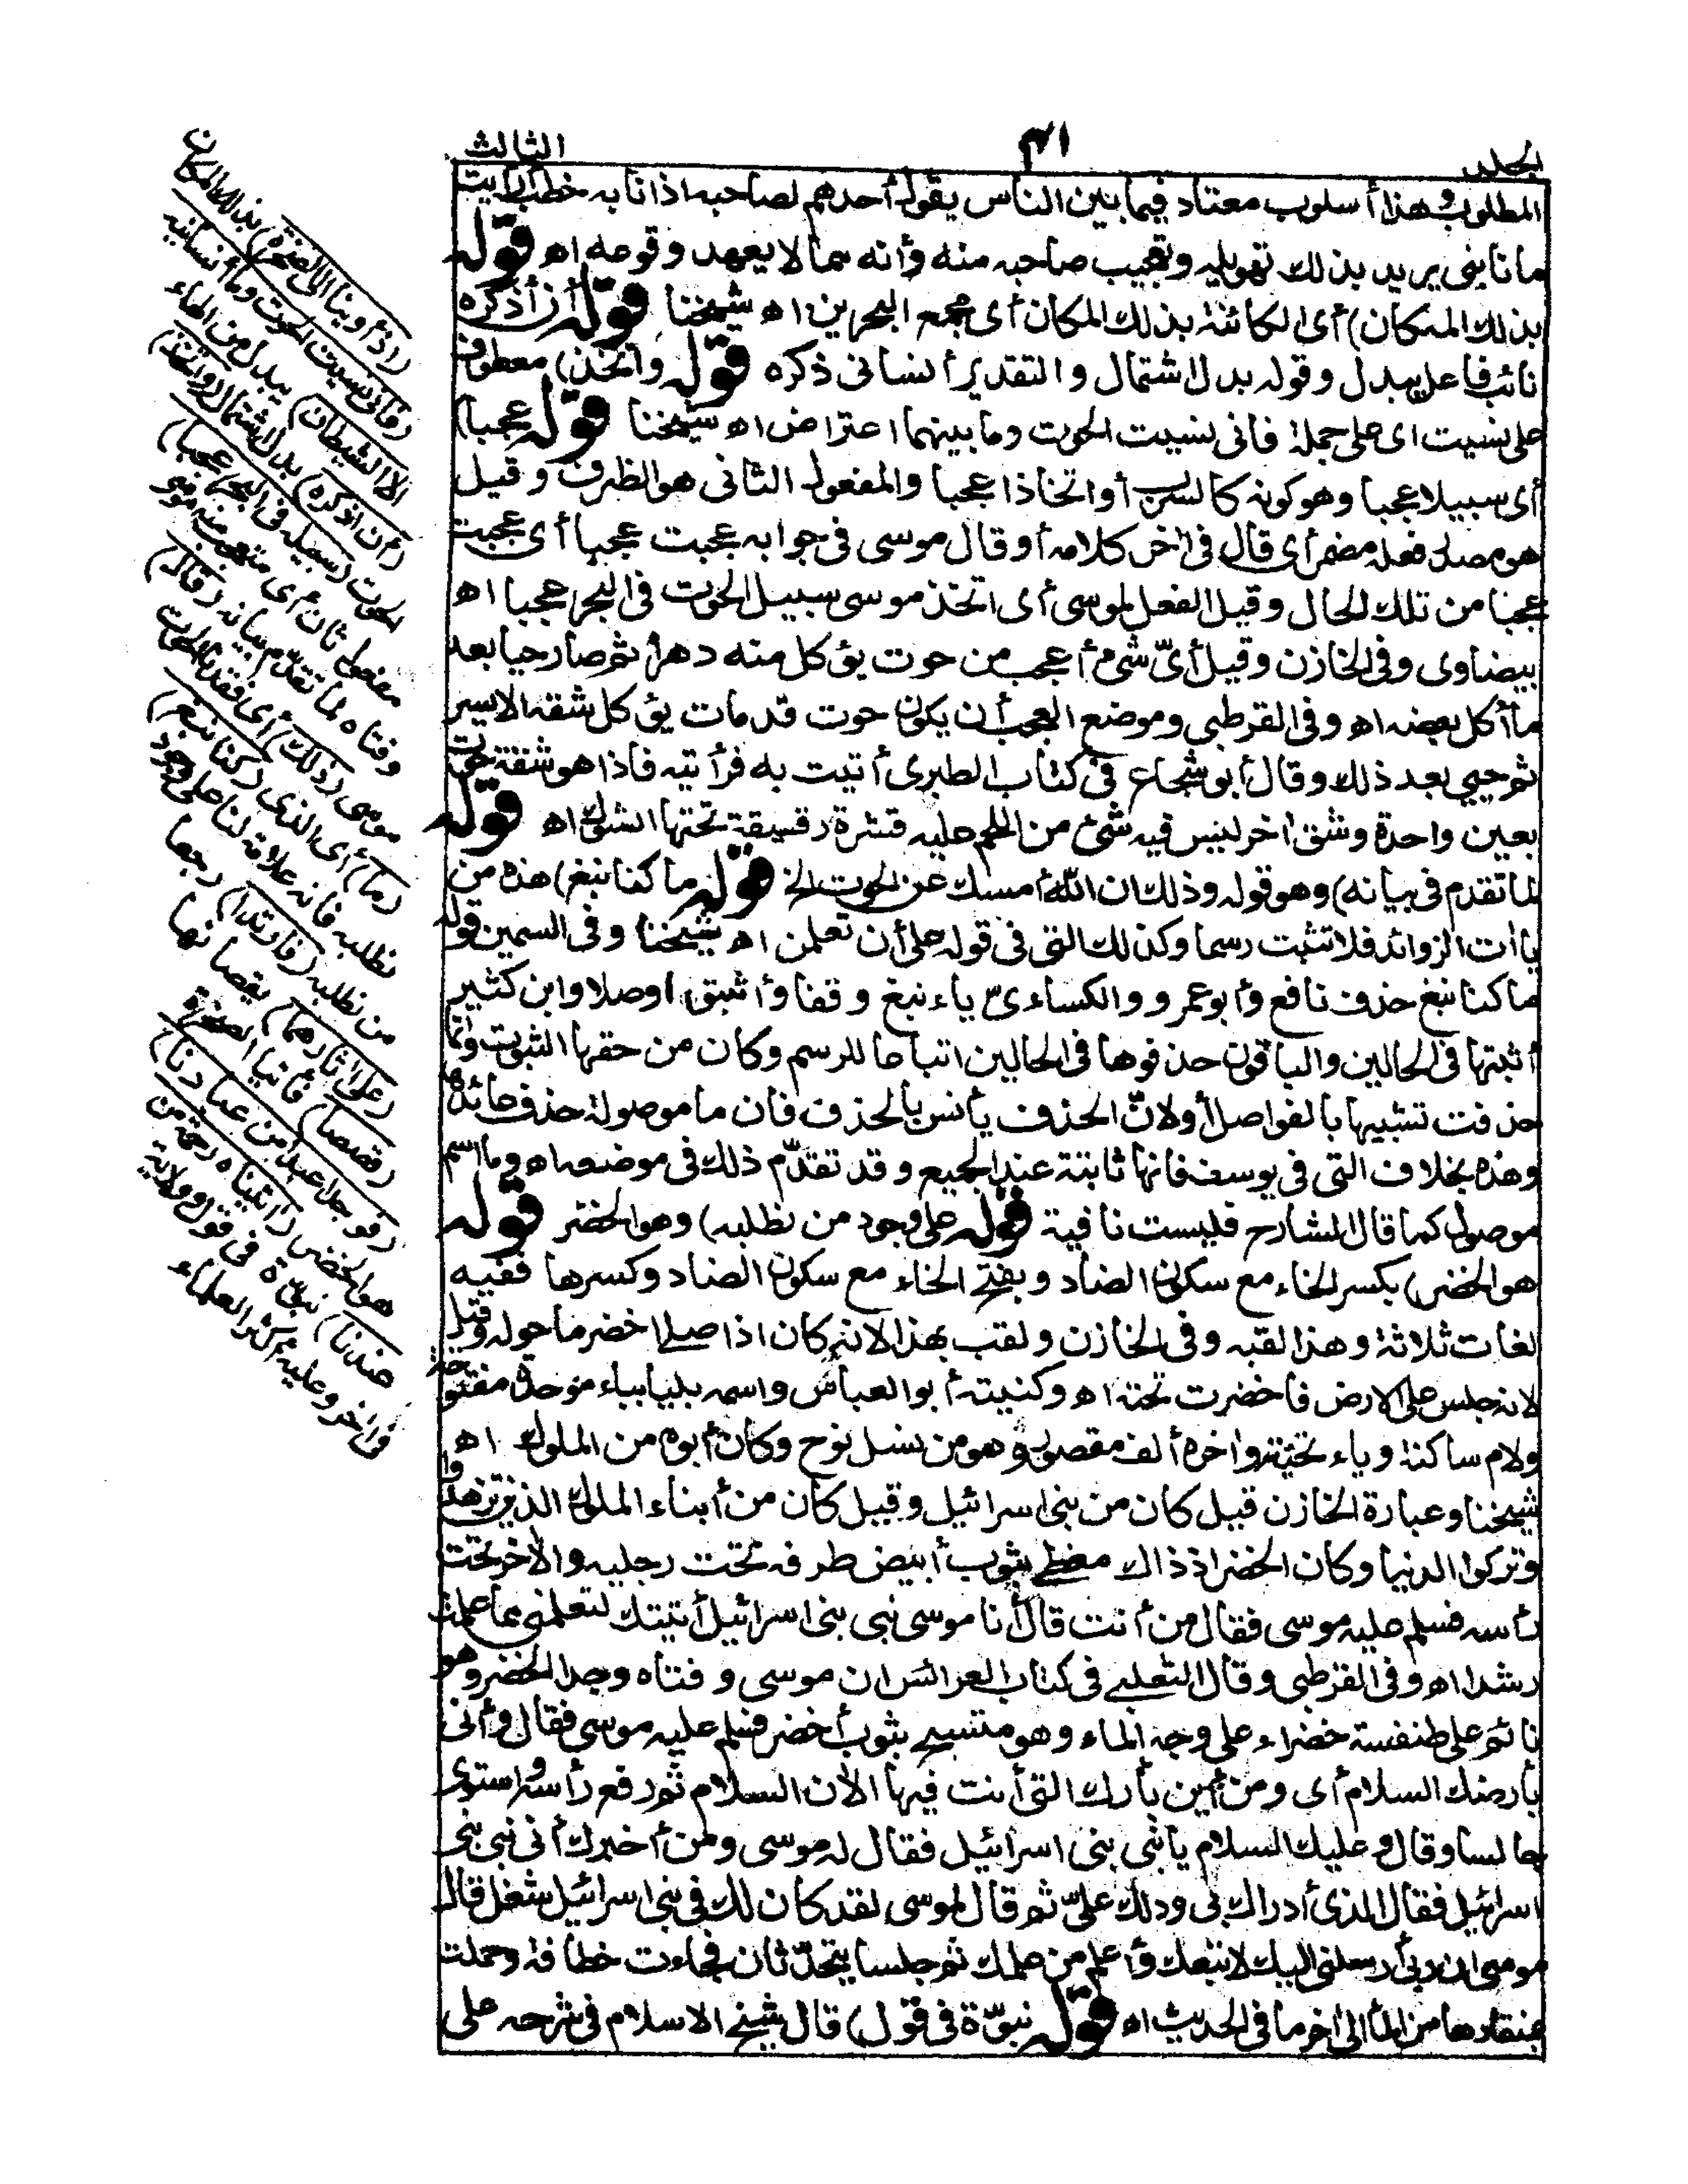 الجلد
٤١
الثالث
المطلوب وهذا أسلوب معتاد فيما بين الناس يقول أحدهم لصاحبه اذا نابه خطب أرأيت
ما نابنى يريد بذلك تهويله وتعجيب صاحبه منه وأنه مما لا يعهد وقوعه اه قوله
بذلك المكان) أى الكائنة بذلك المكان أى مجمع البحرين اه شيخنا قوله أن أذكره
نائب فاعل يبدل وقوله بدل اشتمال والتقدير أنسانى ذكره قوله واتخذ) معطوف
على نسيت اى على جملة فانى نسيت الحوت وما بينهما اعتراض اه شيخنا قوله عجبا)
أى سبيلا عجبا وهو كونه كالسرب أو اتخاذا عجبا والمفعول الثانى هو الظرف وقيل
هو مصدر فعله مضمر أى قال فى اخر كلامه أو قال موسى فى جوابه عجبت عجبا أى عجبت
عجبا من تلك الحال وقيل الفعل لموسى أى اتخذ موسى سبيل الحوت فى البحر عجبا اه
بيضاوى وفى الخازن وقيل أىّ شئ أعجب من حوت يؤكل منه دهرا ثم صار حيا بعد
ما أكل بعضه اه وفى القرطبى وموضع العجب أن يكون حوت قد مات يؤكل شقه الايسر
ثم حيى بعد ذلك وقال أبو شجاع فى كتاب الطبرى أتيت به فرأيته فاذا هو شقة حوت
بعين واحدة وشق اخر ليس فيه شئ من اللحم عليه قشرة رقيقة تحتها الشوك اه قوله
لما تقدم فى بيانه) وهو قوله وذلك ان الله أمسك عن الحوت الخ قوله ما كنا نبغ) هذه من
ياات الزوائد فلا تثبت رسما وكذلك التى فى قوله على أن تعلمن اه شيخنا وفى السمين قوله
ما كنا نبغ حذف نافع وأبو عمرو والكساءىّ ياء نبغ وقفا وأثبتوها وصلا وابن كثير
أثبتها فى الحالين والباقون حذفوها فى الحالين اتباعا للرسم وكان من حقها الثبوت وانما
حذفت تشبيها بالفواصل أو لانّ الحذف يأنس بالحذف فان ما موصولة حذف عائدها
وهذه بخلاف التى فى يوسف فانها ثابتة عند الجميع وقد تقدّم ذلك فى موضعه اه وما اسم
موصول كما قال الشارح فليست نافية قوله على وجود من نطلبه) وهو الخضر قوله
هو الخضر) بكسر الخاء مع سكون الضاد وبفتح الخاء مع سكون الضاد وكسرها ففيه
لغات ثلاثة وهذا لقبه وفى الخازن ولقب بهذا لانه كان اذا صلى اخضر ما حوله وقيل
لانه جلس على الارض فاخضرت تحته اه وكنيته أبو العباس واسمه بليا بباء موحدة مفتوحة
ولام ساكنة وياء تحتية واخره ألف مقصورة وهو من نسل نوح وكان أبوه من الملوك اه
شيخنا وعبارة الخازن قيل كان من بنى اسرائيل وقيل كان من أبناء الملوك الذين تزهدوا
وتركوا الدنيا وكان الخضر اذ ذاك مغطى بثوب أبيض طرفه تحت رجليه والاخر تحت
رأسه فسلم عليه موسى فقال من أنت قال أنا موسى نبى بنى اسرائيل أتيتك لتعلمنى مما علمت
رشدا اه وفى القرطبى وقال الثعلبى فى كتاب العرائس ان موسى وفتاه وجدا الخضر وهو
نائم على طنفسة خضراء على وجه الماء وهو متسجى بثوب أخضر فسلم عليه موسى فقال وأنى
بأرضك السلام أى ومن أين بأرضك التى أنت فيها الآن السلام ثم رفع رأسه واستوى
جالسا وقال وعليك السلام يا نبى بنى اسرائيل فقال له موسى ومن أخبرك أنى نبى بنى
اسرائيل فقال الذى أدراك بى ودلك علىّ ثم قال لموسى لقد كان لك فى بنى اسرائيل شغل قال
موسى ان ربى أرسلنى اليك لاتبعك وأعلم من علمك ثم جلسا يتحدّثان فجاءت خطافة وحملت
بمنقارها من الماء الى اخر ما فى الحديث اه قوله نبوّة فى قول) قال شيخ الاسلام فى شرحه على
(اذ أوينا الى الصخرة) بذلك المكان
(فانى نسيت الحوت وما أنسانيه
الا الشيطان) يبدل من الهاء
(أن أذكره) بدل اشتمال (واتخذ)
الحوت (سبيله فى البحر عجبا)
مفعول ثان أى يتعجب منه موسى
وفتاه لما تقدّم بيانه (قال)
موسى (ذلك) أى فقدنا الحوت
(ما) أى الذى (كنا نبغ)
نطلبه فانه علامة لنا على وجود
من نطلبه (فارتدا) رجعا
(على اثارهما) يقصانها
(قصصا) فأتيا الصخرة
(فوجدا عبدا من عبادنا)
هو الخضر (اتيناه رحمة من
عندنا) نبوّة فى قول وولاية
فى اخر وعليه أكثر العلماء